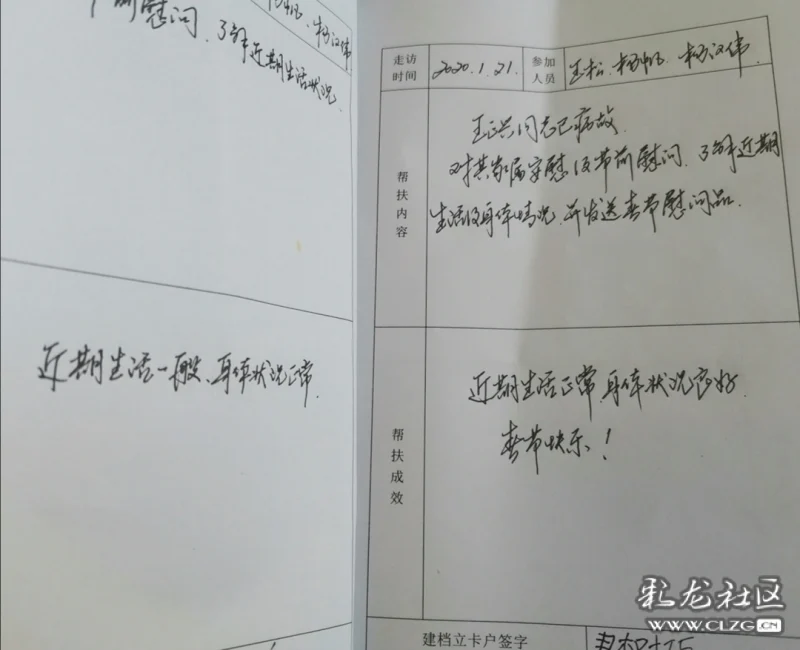 节前慰问、了解近期生活状况
杨汉伟
近期生活一般、身体状况正常.
走访时间
2020.1.21.
参加人员
王松、杨帆、杨汉伟.
帮扶内容
王正兴同志已病故.
对其家属安慰及节前慰问、了解近期
生活及身体情况、并发送春节慰问品.
帮扶成效
近期生活正常 身体状况良好.
春节快乐!
建档立卡户签字
彩龙社区
WWW.CLZG.CN